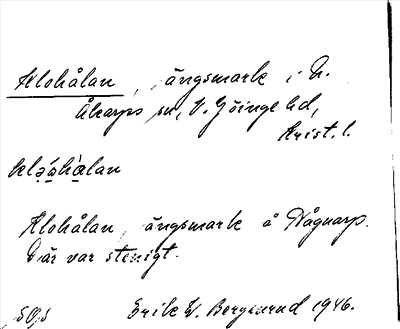 Klohålan, ängsmark i N.
Åkarps sn, V. Göinge hd,
Krist. l.
Klohålan, ängsmark å Vågnarp.
Där var stenigt.
Erik W. Bergunrud 1946.